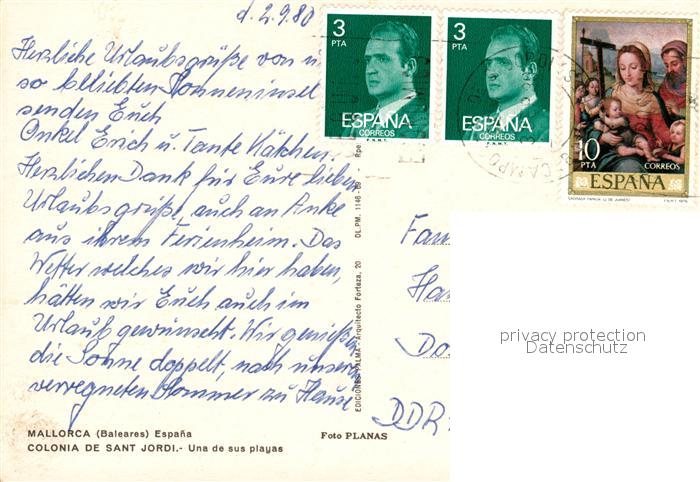 d. 2.9.80
Herzliche Urlaubsgrüße von
so beliebten Sonneninsel
senden Euch
Onkel Erich u. Tante Käthchen.
Herzlichen Dank für Eure lieben
Urlaubsgrüße, auch an Anke
aus ihrem Ferienheim. Das
Wetter welches wir hier haben,
hätten wir Euch auch im
Urlaub gewünscht. Wir genießen
die Sonne doppelt, nach unserem
verregneten Sommer zu Hause
MALLORCA (Baleares) España
COLONIA DE SANT JORDI.- Una de sus playas
Foto PLANAS
EDICIONES PALMA - Arquitecto Forteza, 20 DL.PM. 1146-69
3
PTA
ESPAÑA
CORREOS
F.N.M.T.
3
PTA
ESPAÑA
CORREOS
F.N.M.T.
10
PTA
CORREOS
ESPAÑA
Fam
Han
DDR
privacy protection
Datenschutz